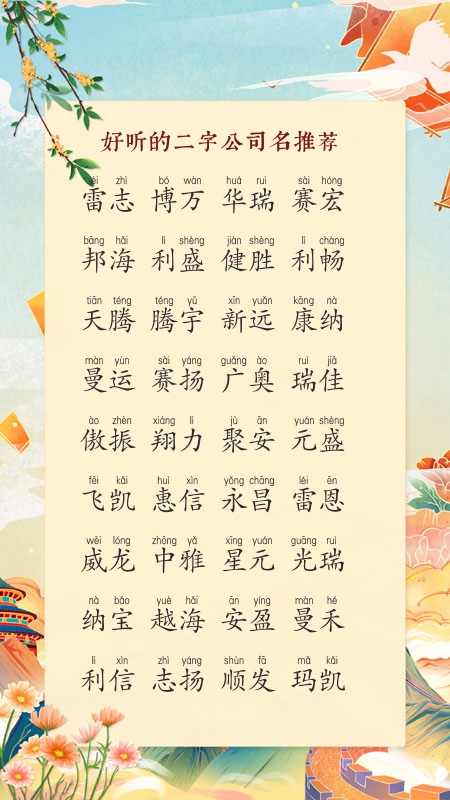 好听的二字公司名推荐
léi zhì bó wàn huá ruì sài hóng
雷志 博万 华瑞 赛宏
bāng hǎi lì shèng jiàn shèng lì chàng
邦海 利盛 健胜 利畅
tiān téng téng yǔ xīn yuǎn kāng nà
天腾 腾宇 新远 康纳
màn yùn sài yáng guǎng ào ruì jiā
曼运 赛扬 广奥 瑞佳
ào zhèn xiáng lì jù ān yuán shèng
傲振 翔力 聚安 元盛
fēi kǎi huì xìn yǒng chāng léi ēn
飞凯 惠信 永昌 雷恩
wēi lóng zhōng yǎ xīng yuán guāng ruì
威龙 中雅 星元 光瑞
nà bǎo yuè hǎi ān yíng màn hé
纳宝 越海 安盈 曼禾
lì xìn zhì yáng shùn fā mǎ kǎi
利信 志扬 顺发 玛凯